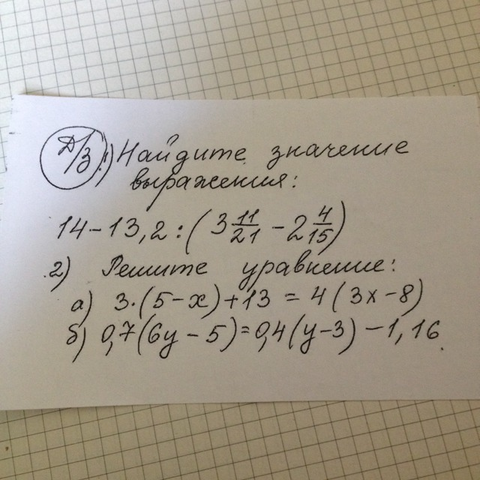 Д/З 1) Найдите значение
выражения:
14-13,2:(3 11/21 - 2 4/15)
2) Решите уравнение:
а) 3·(5-x)+13 = 4(3x-8)
б) 0,7(6y-5)=0,4(y-3)-1,16.